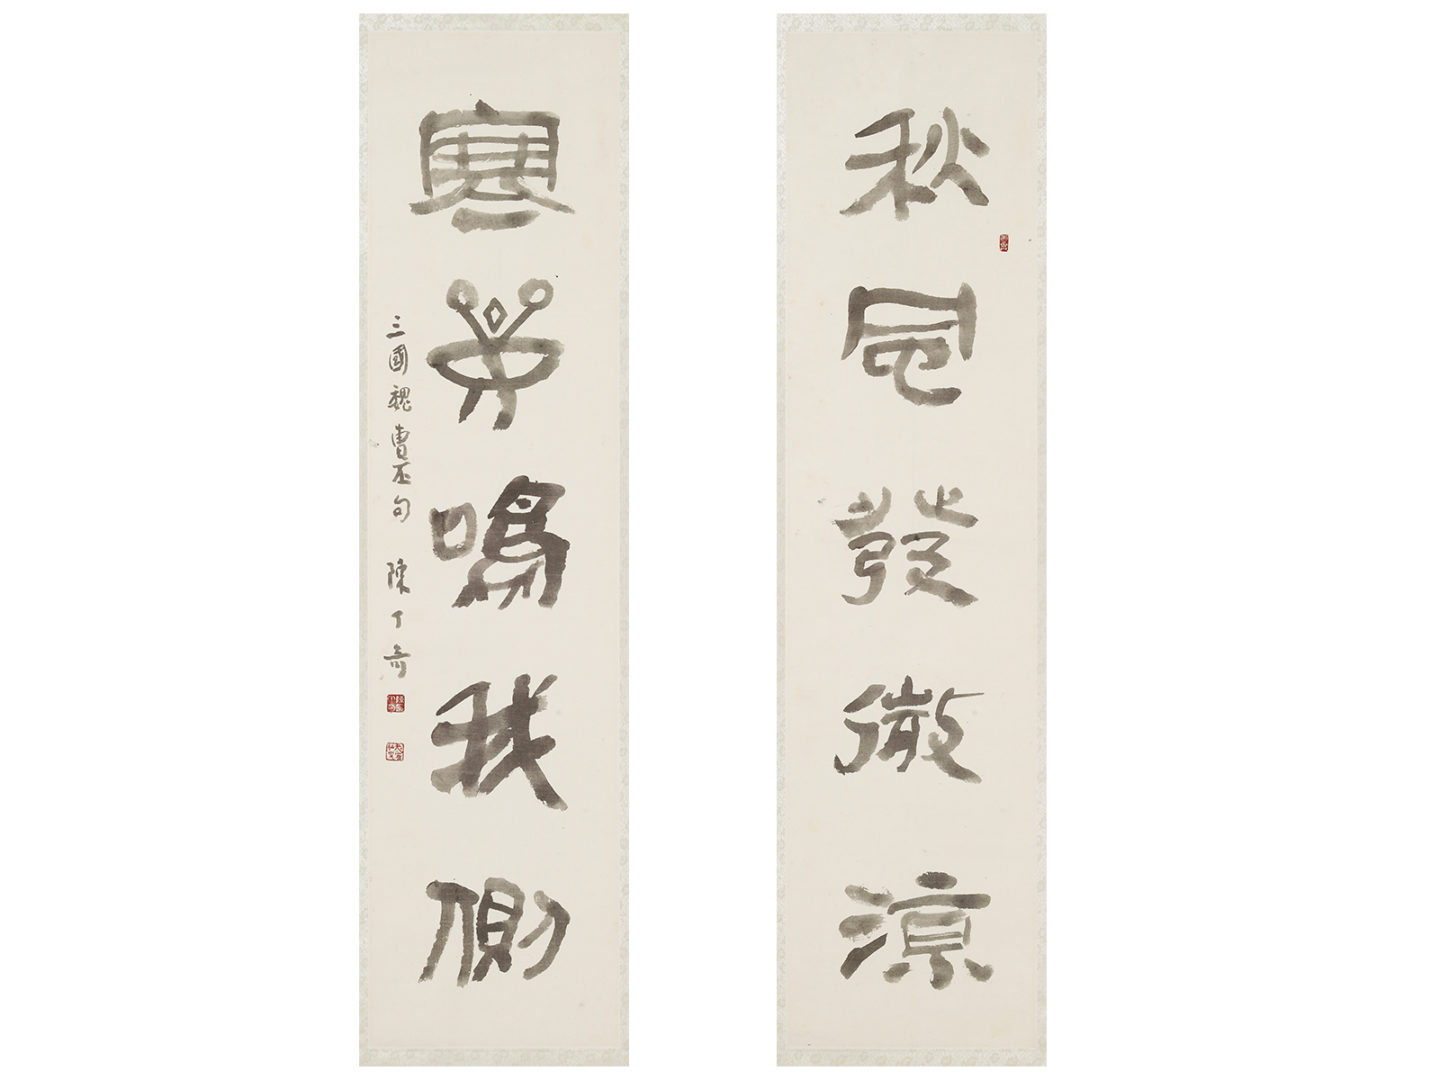 秋風發微涼
寒蟬鳴我側
三國魏曹丕句 陳丁奇